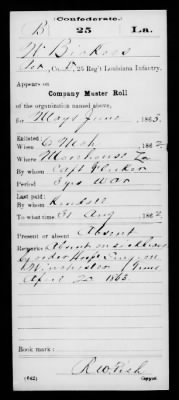 (Confederate.)
B 25 La.
W Bickers
Co. , 25 Reg't Louisiana Infantry.
Appears on
Company Muster Roll
of the organization named above,
for May & June, 1863.
Enlisted:
When 6 Mch, 1862
Where Morehouse La
By whom Capt
Period 3 yrs War
Last paid:
By whom Randall
To what time 31 Aug, 1862
Present or absent Absent
Remarks: Absent on sick
by order Surgeon
Winchester
April 1863
Book mark:
R W Fish
(642) Copyist.